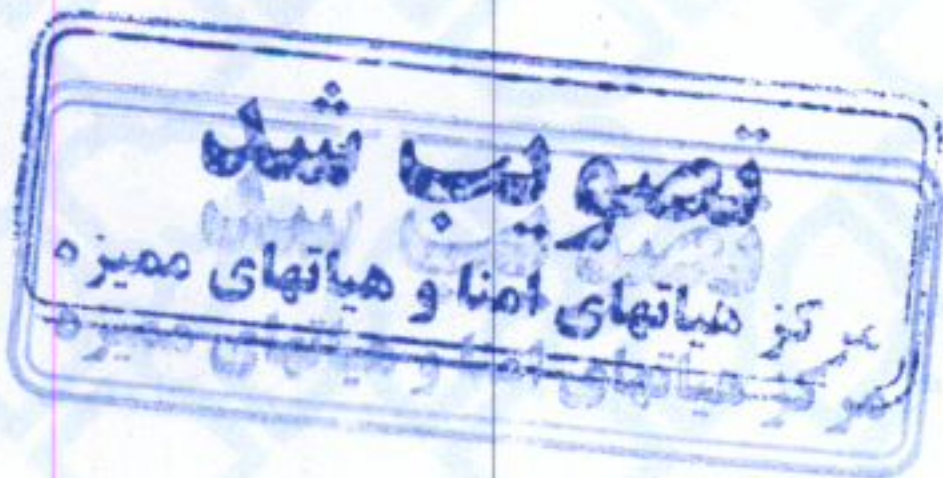 تصویب شد
مرکز هیاتهای امنا و هیاتهای ممیزه